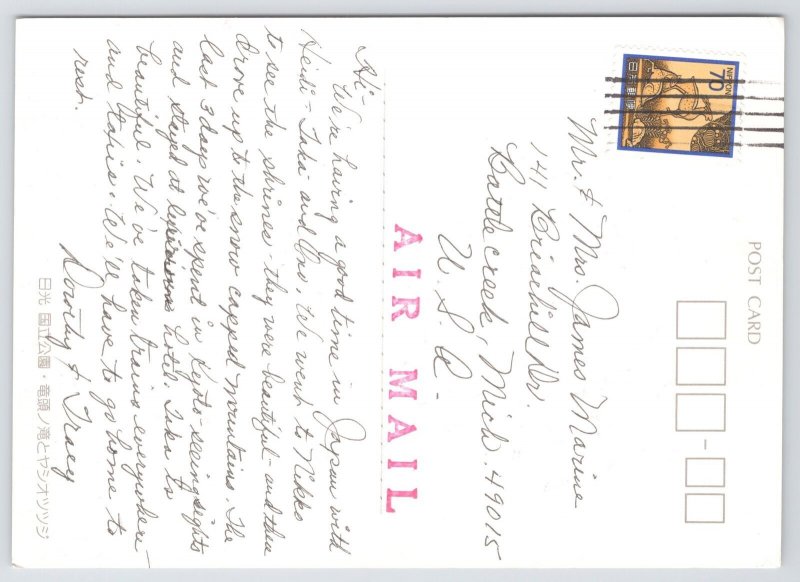 POST CARD
NIPPON
70
日本郵便
Hi-
We're having a good time in Japan with
Heidi - Inka - and Ons. We went to Nikko
to see the shrines - they were beautiful - and then
drove up to the snow capped mountains. The
last 3 days we've spent in Kyoto - seeing sights
and stayed at luxurious hotel. Inka is
beautiful. We've taken trains everywhere -
and taxis. We'll have to go home to
rest.
Dorothy & Tracy
AIR MAIL
Mr. & Mrs. James Marine
141 Briarhill Dr.
Battlecreek, Mich. 49015
U. S. A.
日光 国立公園・竜頭ノ滝とヤシオツツジ